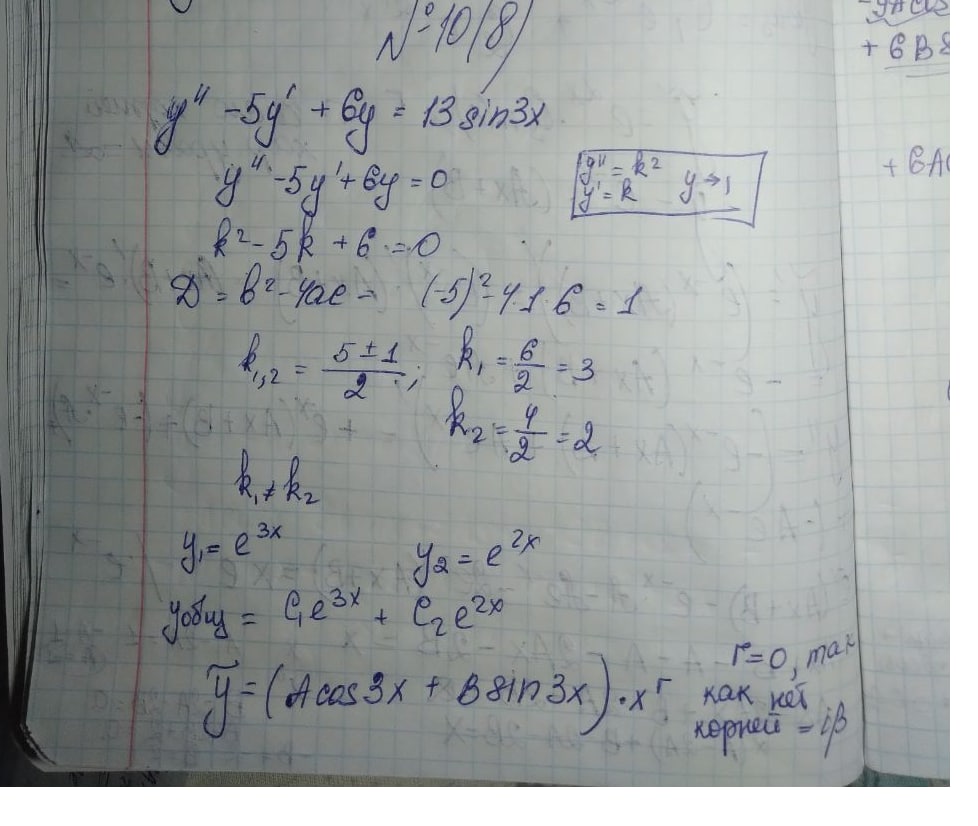 №10(8)
y'' - 5y' + 6y = 13 sin3x
y'' - 5y' + 6y = 0
y'' = k²
y' = k y → 1
k² - 5k + 6 = 0
Д = b² - 4ac = (-5)² - 4·1·6 = 1
k₁,₂ = (5 ± 1)/2 ; k₁ = 6/2 = 3
k₂ = 4/2 = 2
k₁ ≠ k₂
y₁ = e^{3x} y₂ = e^{2x}
yобщ = C₁e^{3x} + C₂e^{2x}
ỹ = (A cos3x + B sin3x)·x^r
r = 0, так
как нет
корней = iβ
+ 6B
+ 6A